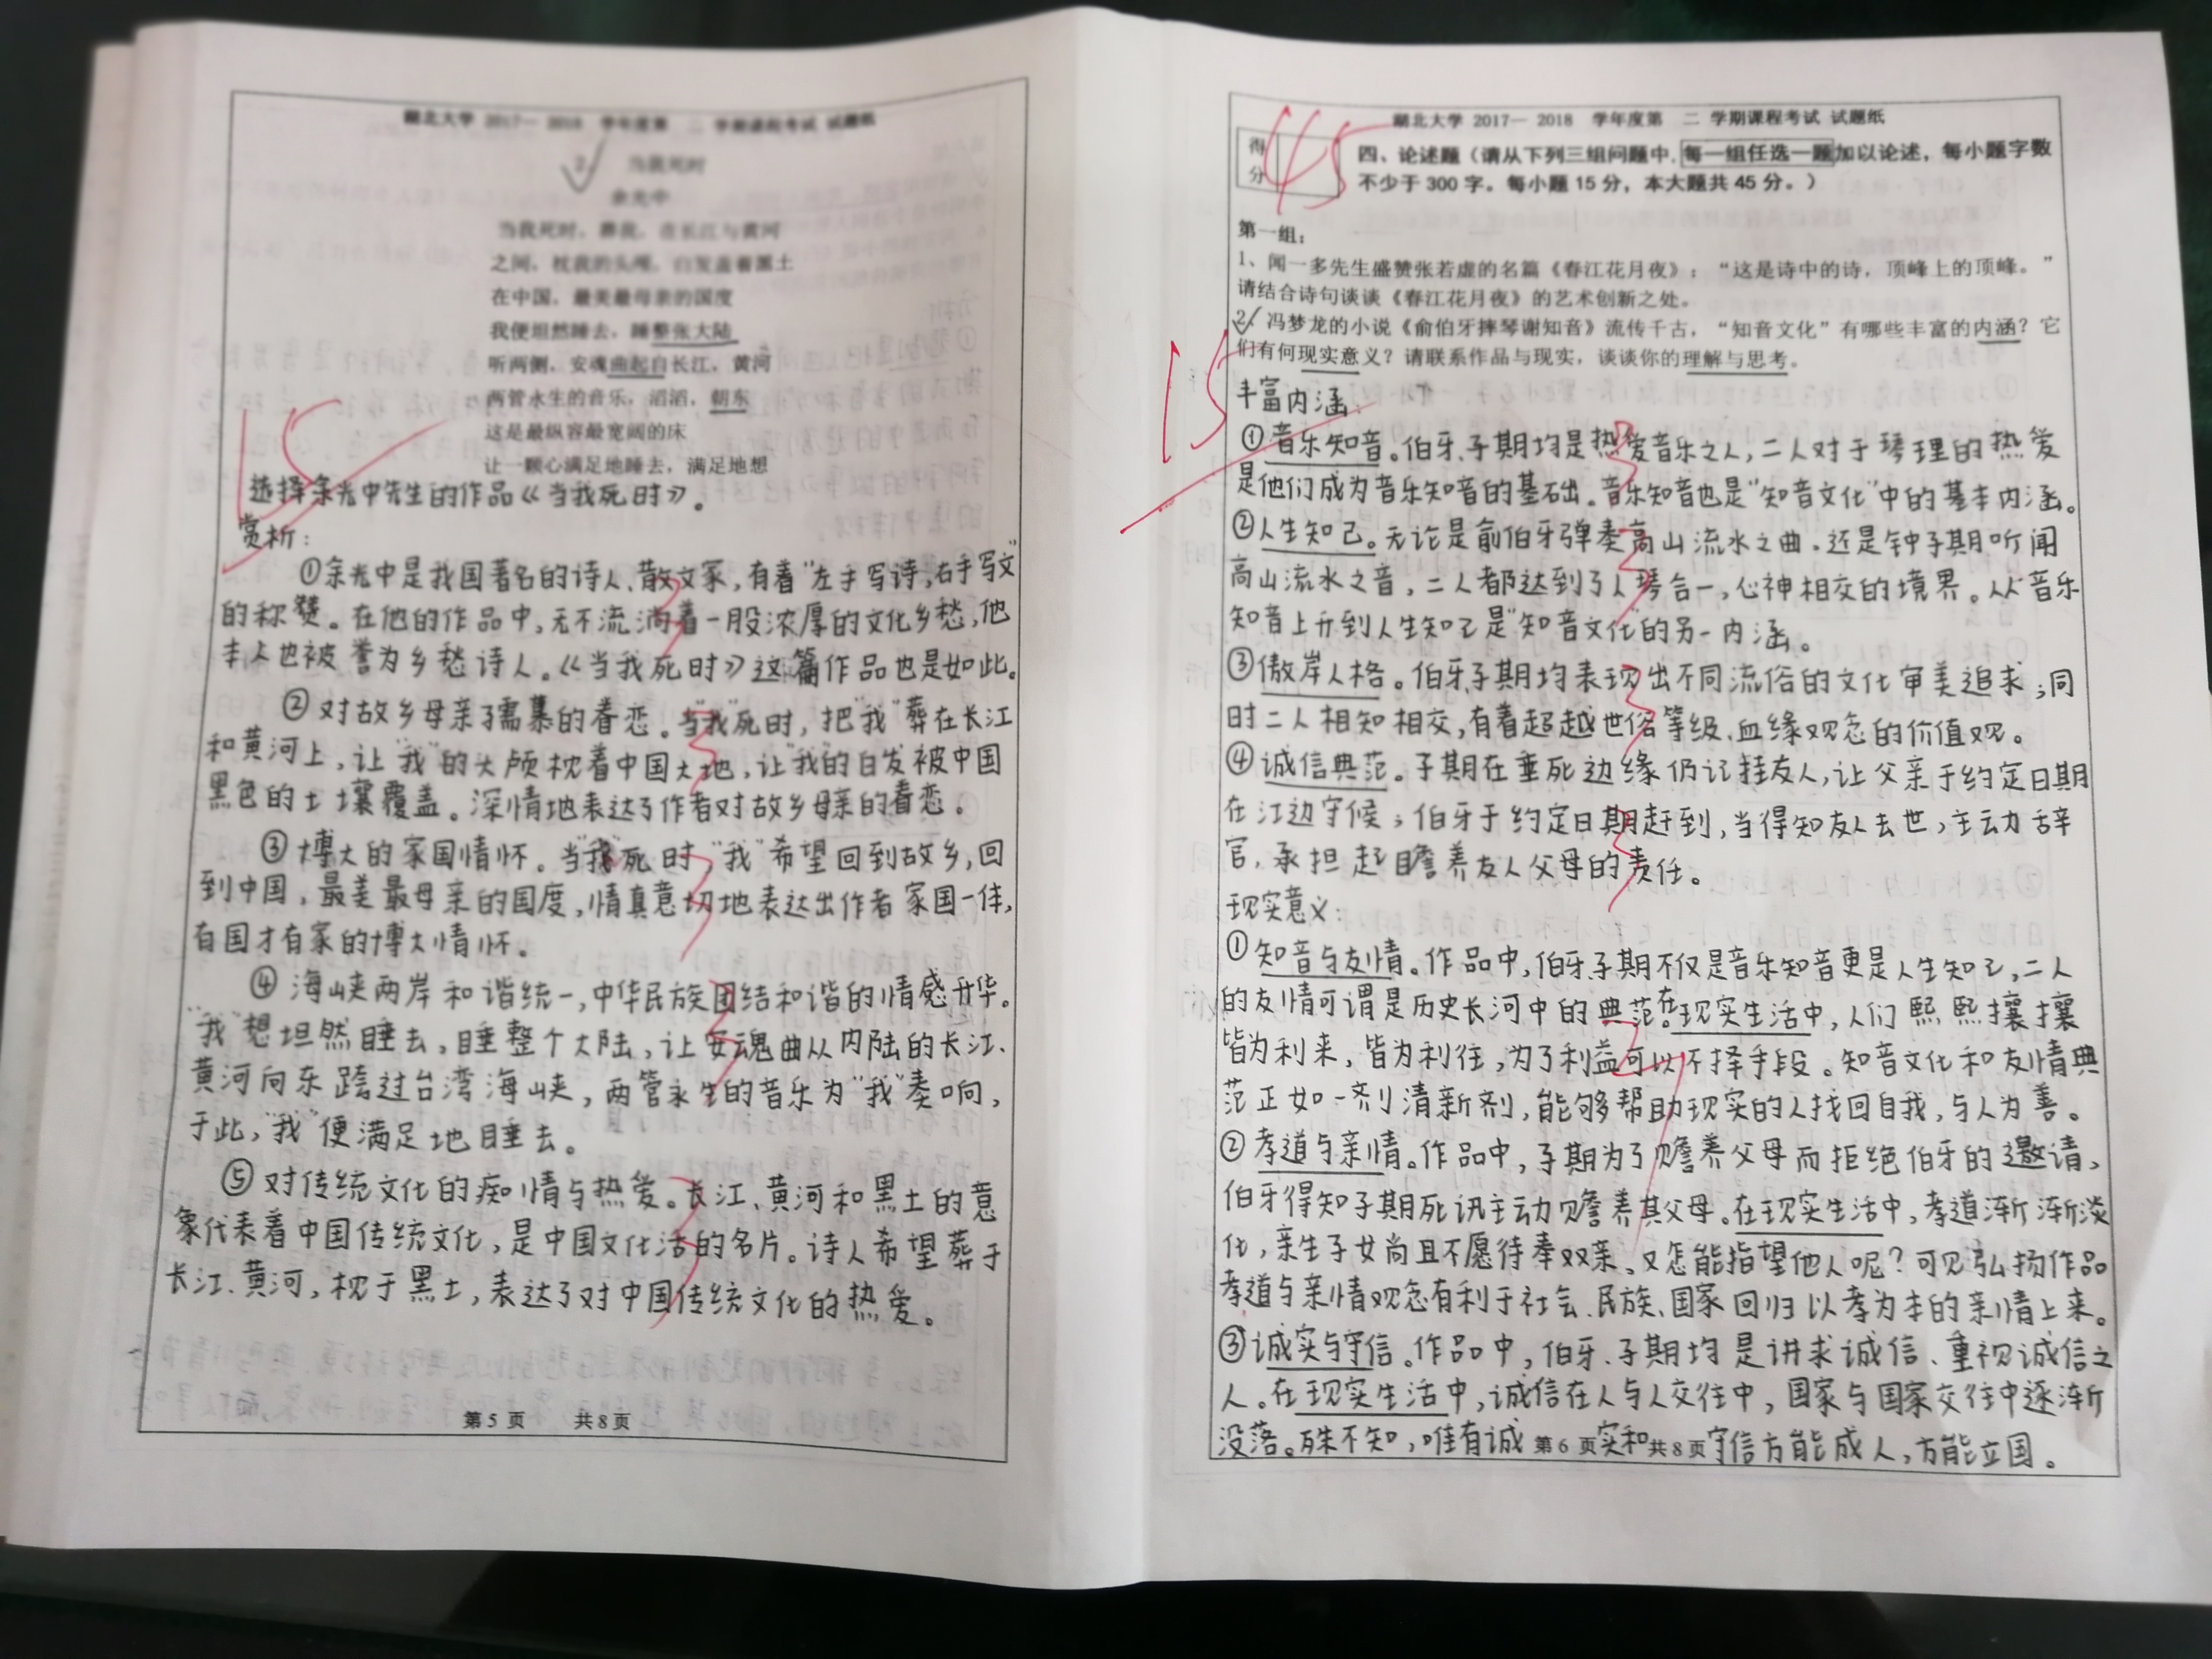 湖北大学 2017— 2018 学年度第 二 学期课程考试 试题纸
2、 当我死时
余光中
当我死时，葬我，在长江与黄河
之间，枕我的头颅，白发盖着黑土
在中国，最美最母亲的国度
我便坦然睡去，睡整张大陆
听两侧，安魂曲起自长江，黄河
两管永生的音乐，滔滔，朝东
这是最纵容最宽阔的床
让一颗心满足地睡去，满足地想
15
选择余光中先生的作品《当我死时》。
赏析：
①余光中是我国著名的诗人、散文家，有着"左手写诗，右手写文"
的称赞。在他的作品中，无不流淌着一股浓厚的文化乡愁，他
本人也被誉为乡愁诗人。《当我死时》这篇作品也是如此。
②对故乡母亲孺慕的眷恋。当"我"死时，把"我"葬在长江
和黄河上，让"我"的头颅枕着中国大地，让"我"的白发被中国
黑色的土壤覆盖。深情地表达了作者对故乡母亲的眷恋。
③博大的家国情怀。当"我"死时，"我"希望回到故乡，回
到中国，最美最母亲的国度，情真意切地表达出作者家国一体，
有国才有家的博大情怀。
④海峡两岸和谐统一，中华民族团结和谐的情感升华。
"我"想坦然睡去，睡整个大陆，让安魂曲从内陆的长江、
黄河向东跨过台湾海峡，两管永生的音乐为"我"奏响，
于此，"我"便满足地睡去。
⑤对传统文化的痴情与热爱。长江、黄河和黑土的意
象代表着中国传统文化，是中国文化活的名片。诗人希望葬于
长江、黄河，枕于黑土，表达了对中国传统文化的热爱。
第 5 页 共 8 页
湖北大学 2017— 2018 学年度第 二 学期课程考试 试题纸
得分
45
四、论述题（请从下列三组问题中，每一组任选一题加以论述，每小题字数
不少于 300 字。每小题 15 分，本大题共 45 分。）
第一组：
1、闻一多先生盛赞张若虚的名篇《春江花月夜》："这是诗中的诗，顶峰上的顶峰。"
请结合诗句谈谈《春江花月夜》的艺术创新之处。
2、冯梦龙的小说《俞伯牙摔琴谢知音》流传千古，"知音文化"有哪些丰富的内涵？它
们有何现实意义？请联系作品与现实，谈谈你的理解与思考。
15
丰富内涵：
①音乐知音。伯牙、子期均是热爱音乐之人，二人对于琴理的热爱
是他们成为音乐知音的基础。音乐知音也是"知音文化"中的基本内涵。
②人生知己。无论是俞伯牙弹奏高山流水之曲，还是钟子期听闻
高山流水之音，二人都达到了人琴合一，心神相交的境界。从音乐
知音上升到人生知己是"知音文化"的另一内涵。
③傲岸人格。伯牙、子期均表现出不同流俗的文化审美追求；同
时二人相知相交，有着超越世俗等级、血缘观念的价值观。
④诚信典范。子期在垂死边缘仍记挂友人，让父亲于约定日期
在江边守候；伯牙于约定日期赶到，当得知友人去世，主动辞
官，承担起瞻养友人父母的责任。
现实意义：
①知音与友情。作品中，伯牙、子期不仅是音乐知音更是人生知己，二人
的友情可谓是历史长河中的典范。在现实生活中，人们熙熙攘攘
皆为利来，皆为利往，为了利益可以不择手段。知音文化和友情典
范正如一剂清新剂，能够帮助现实的人找回自我，与人为善。
②孝道与亲情。作品中，子期为了赡养父母而拒绝伯牙的邀请，
伯牙得知子期死讯主动赡养其父母。在现实生活中，孝道渐渐淡
化，亲生子女尚且不愿待奉双亲，又怎能指望他人呢？可见弘扬作品
孝道与亲情观念有利于社会、民族、国家回归以孝为本的亲情上来。
③诚实与守信。作品中，伯牙、子期均是讲求诚信、重视诚信之
人。在现实生活中，诚信在人与人交往中，国家与国家交往中逐渐
没落。殊不知，唯有诚实和守信方能成人，方能立国。
第 6 页 共 8 页